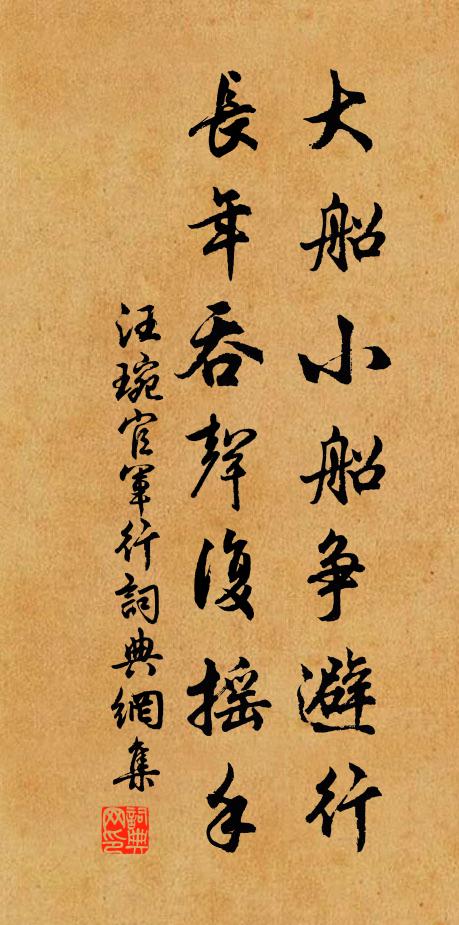 大船小船争避行
長年吞聲復摇手
汪琬官軍行詞典網集
詞典网印